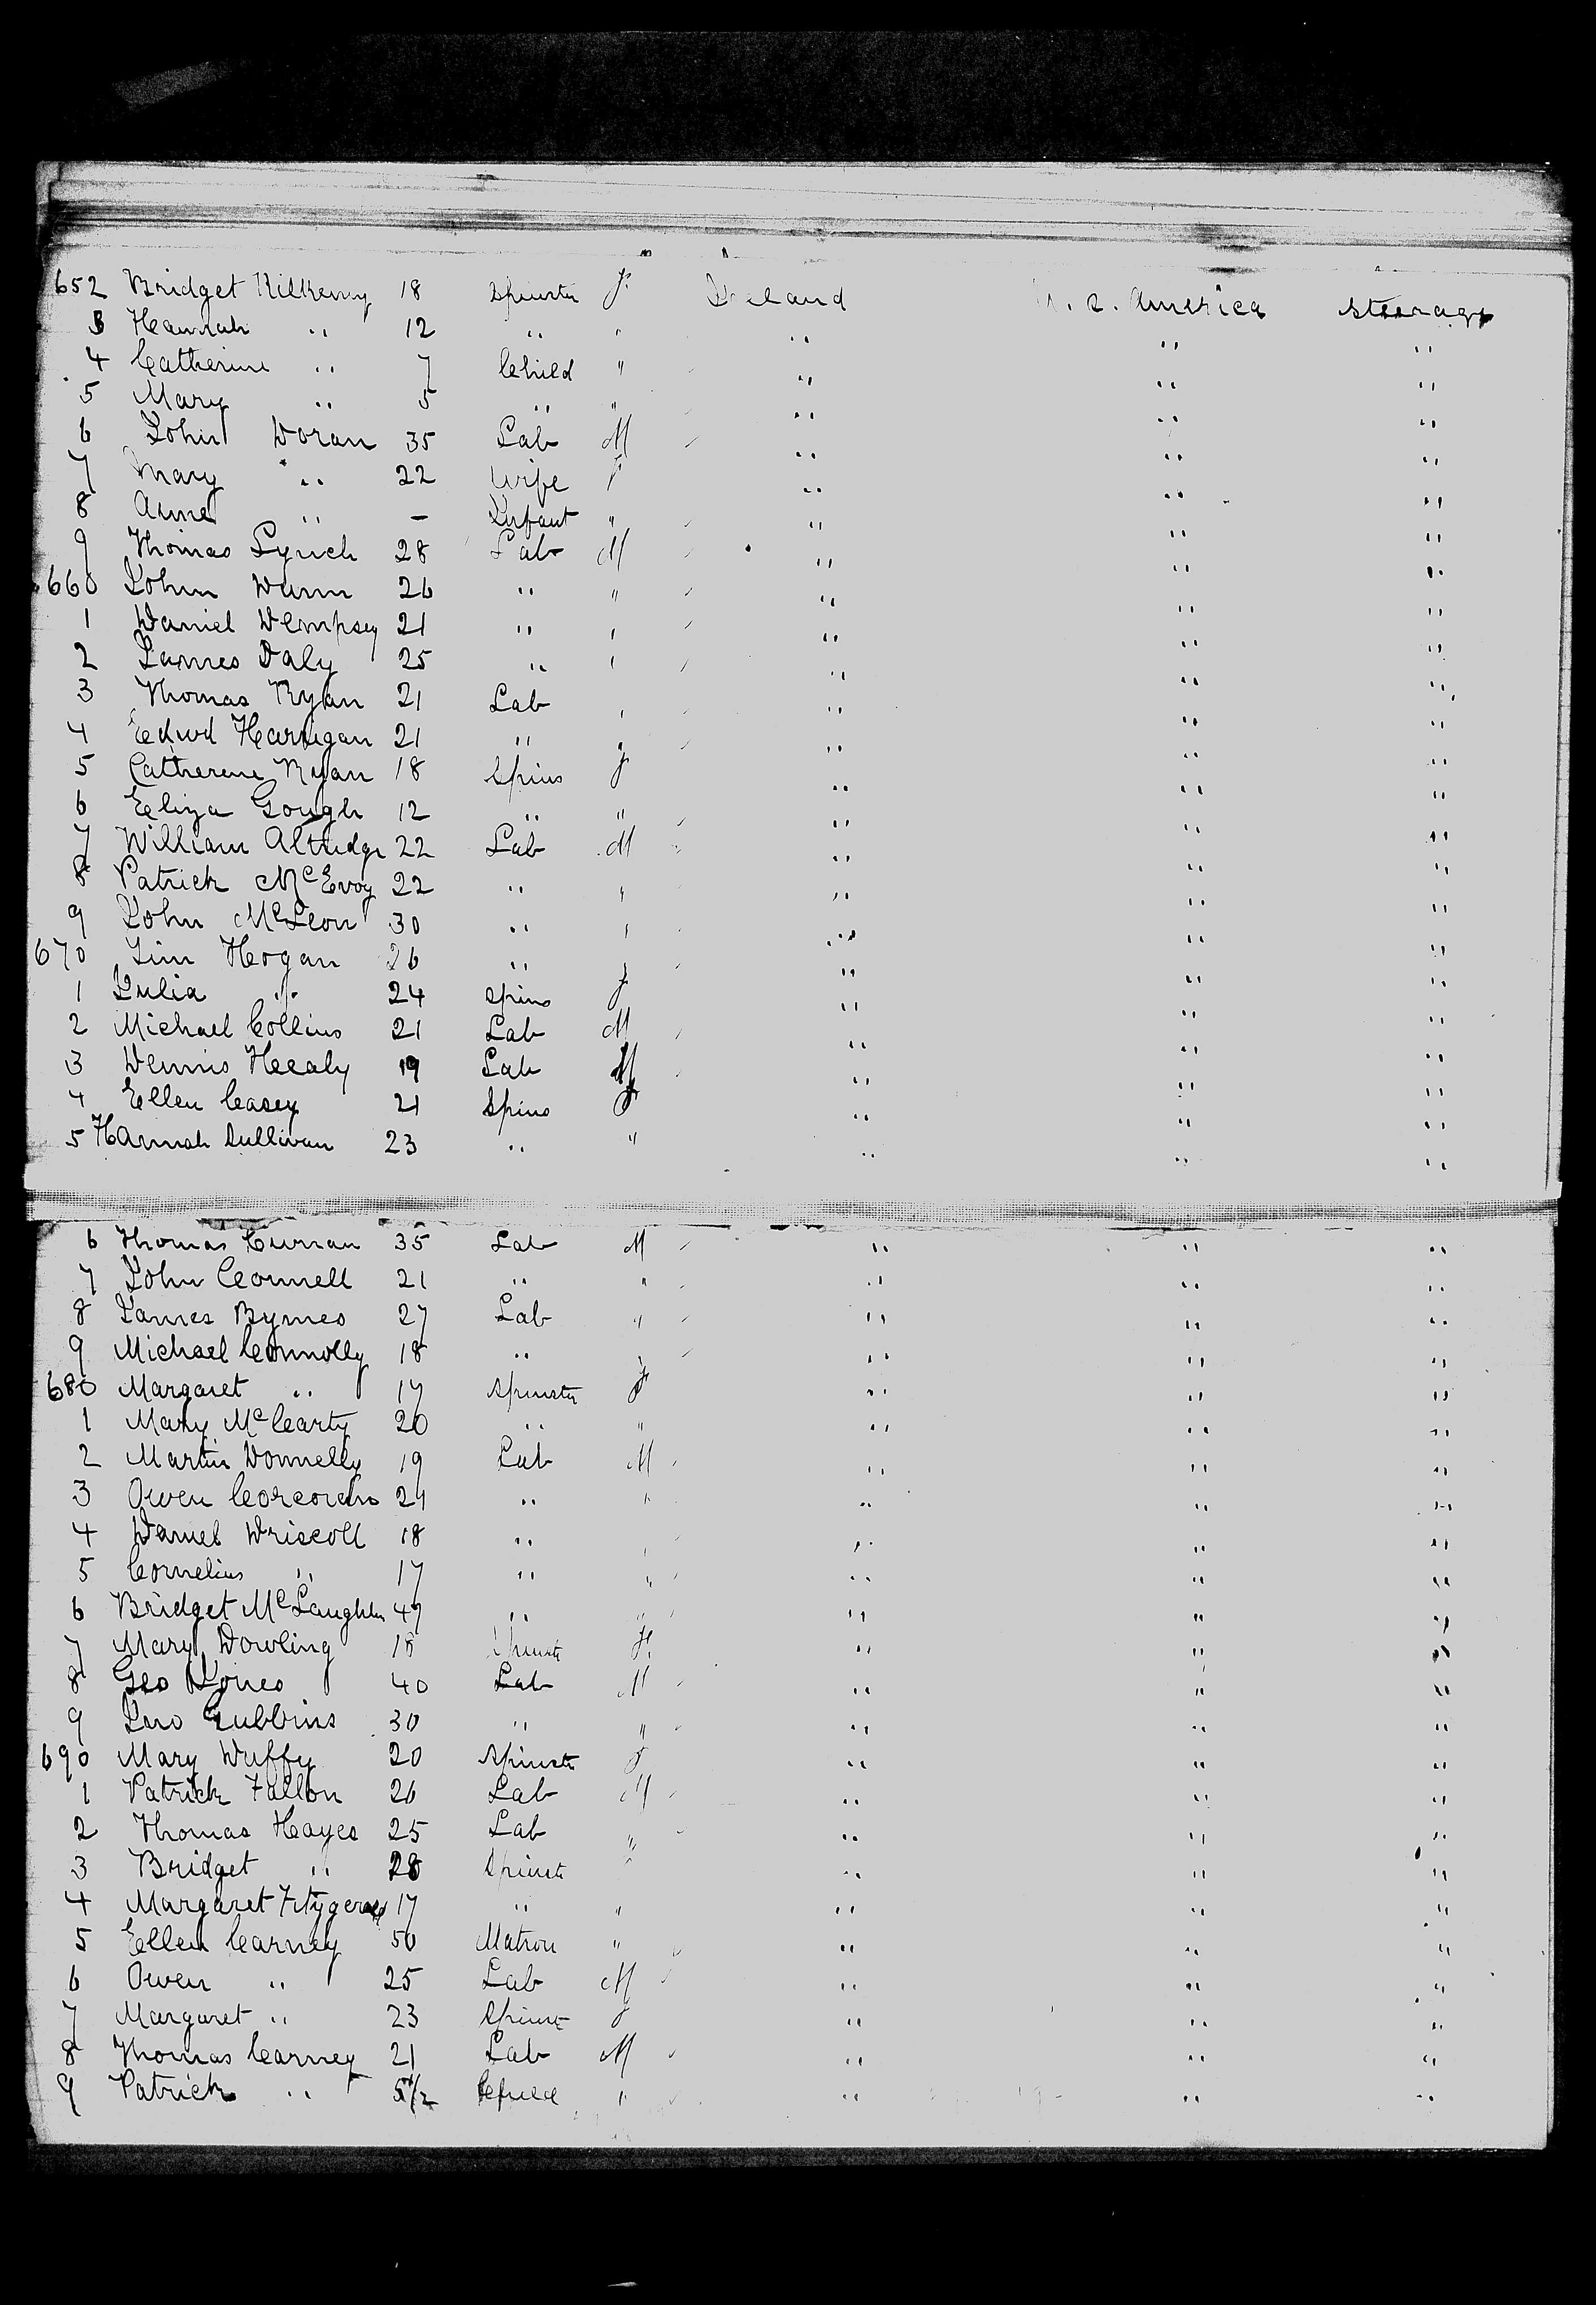 652 Bridget Kilkenny 18 Spinster F Ireland U. S. America Steerage
3 Hannah " 12 " " " " "
4 Catherine " 7 Child " " " "
5 Mary " 5 " " " " "
6 John Doran 35 Lab M " " "
7 Mary " 22 Wife F " " "
8 Anne " – Infant " " " "
9 Thomas Lynch 28 Lab M " " "
660 John Dunn 26 " " " " "
1 Daniel Dempsey 21 " " " " "
2 James Daly 25 " " " " "
3 Thomas Ryan 21 Lab " " " "
4 Edwd Harrigan 21 " " " " "
5 Catherine Ryan 18 Spins F " " "
6 Eliza Gough 12 " " " " "
7 William 22 Lab M " " "
8 Patrick McEvoy 22 " " " " "
9 John McLeon 30 " " " " "
670 Hogan 26 " " " " "
1 Julia " 24 Spins F " " "
2 Michael Collins 21 Lab M " " "
3 Dennis Healy 19 Lab M " " "
4 Ellen Casey 21 Spins F " " "
5 Hannah Sullivan 23 " " " " "
6 Thomas Curran 35 Lab M " " "
7 John Connell 21 " " " " "
8 James Byrnes 27 Lab " " " "
9 Michael Connolly 18 " " " " "
680 Margaret " 17 Spinster F " " "
1 Mary McCearty 20 " " " " "
2 Martin Donnelly 19 Lab M " " "
3 Owen 21 " " " " "
4 Daniel Driscoll 18 " " " " "
5 Cornelius " 17 " " " " "
6 Bridget McLaughlin 47 " " " " "
7 Mary Dowling 18 Spinste F " " "
8 Geo Jones 40 Lab M " " "
9 Jno Gubbins 30 " " " " "
690 Mary Duffy 20 Spinste F " " "
1 Patrick Fallon 26 Lab M " " "
2 Thomas Hayes 25 Lab " " " "
3 Bridget " 28 Spinste " " " "
4 Margaret Fitzgerald 17 " " " " "
5 Ellen Carney 50 Matron " " " "
6 Owen " 25 Lab M " " "
7 Margaret " 23 Spinst F " " "
8 Thomas Carney 21 Lab M " " "
9 Patrick " 5 1/2 Child " " " "